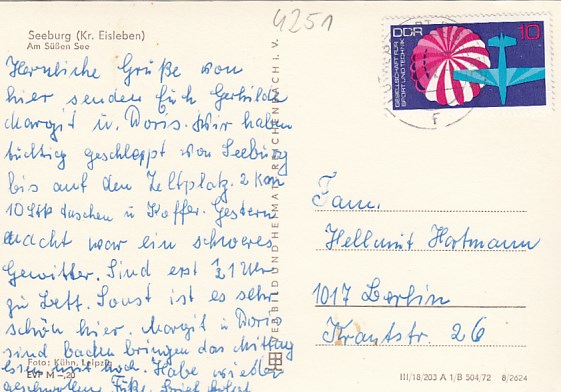 4251
Seeburg (Kr. Eisleben)
Am Süßen See
Herzliche Grüße von
hier senden Euch Gerhilde
Margit u. Doris. Wir haben
tüchtig geschleppt von Seeburg
bis auf den Zeltplatz. 2 km
10 Stk taschen u Koffer. Gestern
nacht war ein schweres
Gewitter. Sind erst 1 Uhr
zu Bett. Sonst ist es sehr
schön hier. Margit u Doris
sind baden bringen das Mittag
essen hoch. Habe wieder
geschwollene Füße. Brief
Foto: Kühn, Leipzig
EVP M -,20
BILD UND HEIMAT REICHENBACH I. V.
DDR
10
GESELLSCHAFT FÜR
SPORT UND TECHNIK
F
Fam.
Hellmut Hartmann
1017 Berlin
Krautstr. 26
III/18/203 A 1/B 504/72 8/2624